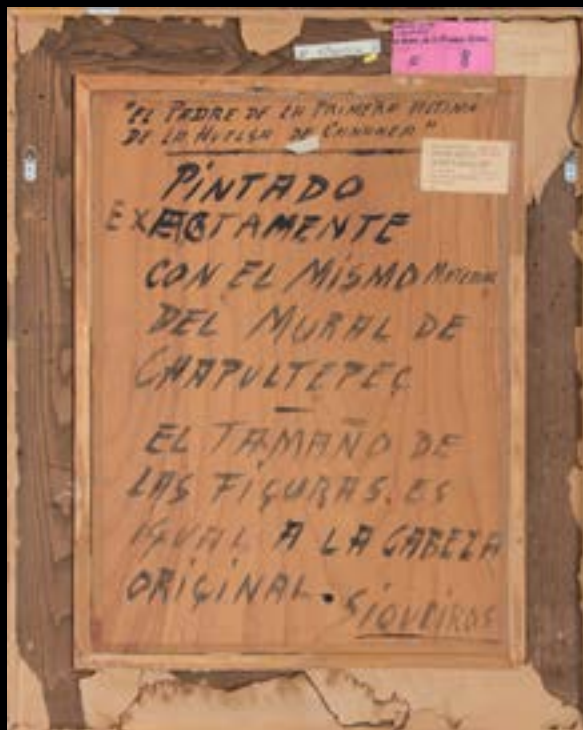 8
"EL PADRE DE LA PRIMERA VICTIMA
DE LA HUELGA DE CANANEA"
PINTADO
EXACTAMENTE
CON EL MISMO MATERIAL
DEL MURAL DE
CHAPULTEPEC
—
EL TAMAÑO DE
LAS FIGURAS. ES
IGUAL A LA CABEZA
ORIGINAL.
SIQUEIROS